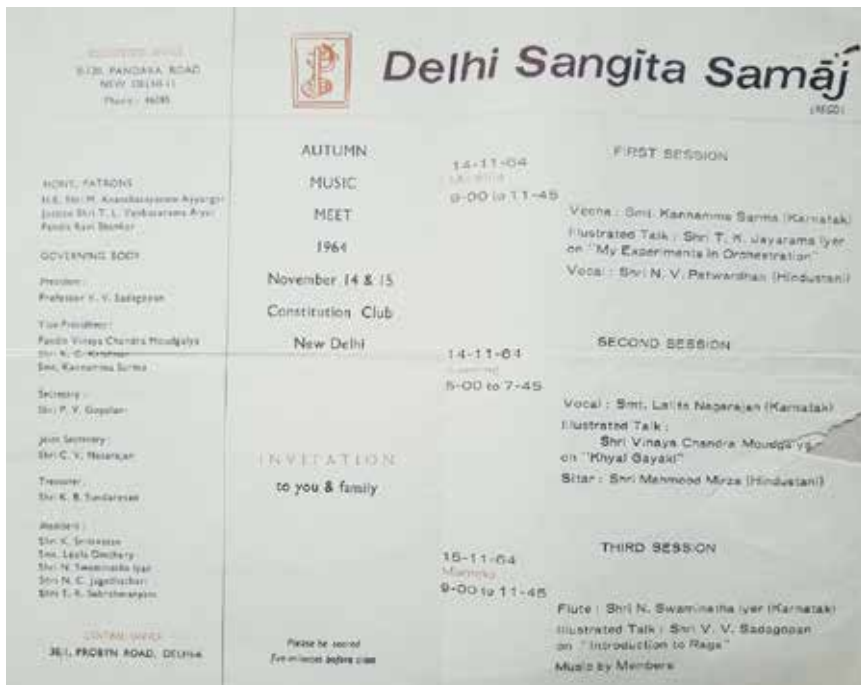 D-120, PANDARA ROAD
NEW DELHI-11
Phone : 46085
Delhi Sangīta Samāj
(REGD)
HONY. PATRONS
H.E. Shri M. Ananthasayanam Ayyangar
Justice Shri T. L. Venkatarama Aiyar
Pandit Ravi Shankar
GOVERNING BODY
President :
Professor V. V. Sadagopan
Vice-Presidents :
Pandit Vinaya Chandra Moudgalya
Shri K. C.
Smt. Kannamma Sarma
Secretary :
Shri P. V. Gopalan
Joint Secretary :
Shri C. V. Natarajan
Treasurer :
Shri K. B. Sundaresan
Members :
Shri K. Srinivasan
Smt. Leela Omchery
Shri N. Swaminatha Iyer
Shri N. C. Jagathachari
Shri E. R. Subrahmanyam
38/1, PROBYN ROAD, DELHI-6
AUTUMN
MUSIC
MEET
1964
November 14 & 15
Constitution Club
New Delhi
INVITATION
to you & family
Please be seated
Five minutes before time
14-11-64
9-00 to 11-45
FIRST SESSION
Veena : Smt. Kannamma Sarma (Karnatak)
Illustrated Talk : Shri T. K. Jayarama Iyer
on "My Experiments in Orchestration"
Vocal : Shri N. V. Patwardhan (Hindustani)
14-11-64
5-00 to 7-45
SECOND SESSION
Vocal : Smt. Lalita Nagarajan (Karnatak)
Illustrated Talk :
Shri Vinaya Chandra Moudgalya
on "Khyal Gayaki"
Sitar : Shri Mahmood Mirza (Hindustani)
15-11-64
Morning
9-00 to 11-45
THIRD SESSION
Flute : Shri N. Swaminatha Iyer (Karnatak)
Illustrated Talk : Shri V. V. Sadagopan
on "Introduction to Raga"
Music by Members